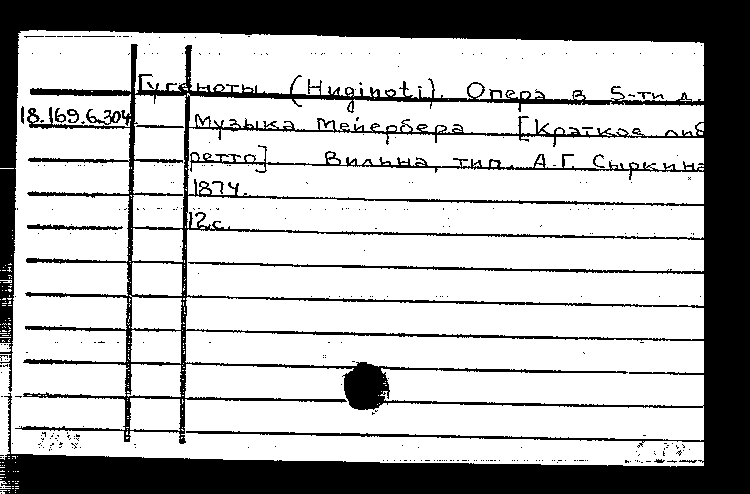 Гугеноты (Huginoti). Опера в 5-ти д.
18.169.6.304 Музыка Мейербера [Краткое либ
ретто]. Вильна, тип. А.Г. Сыркина
1874.
12 с.